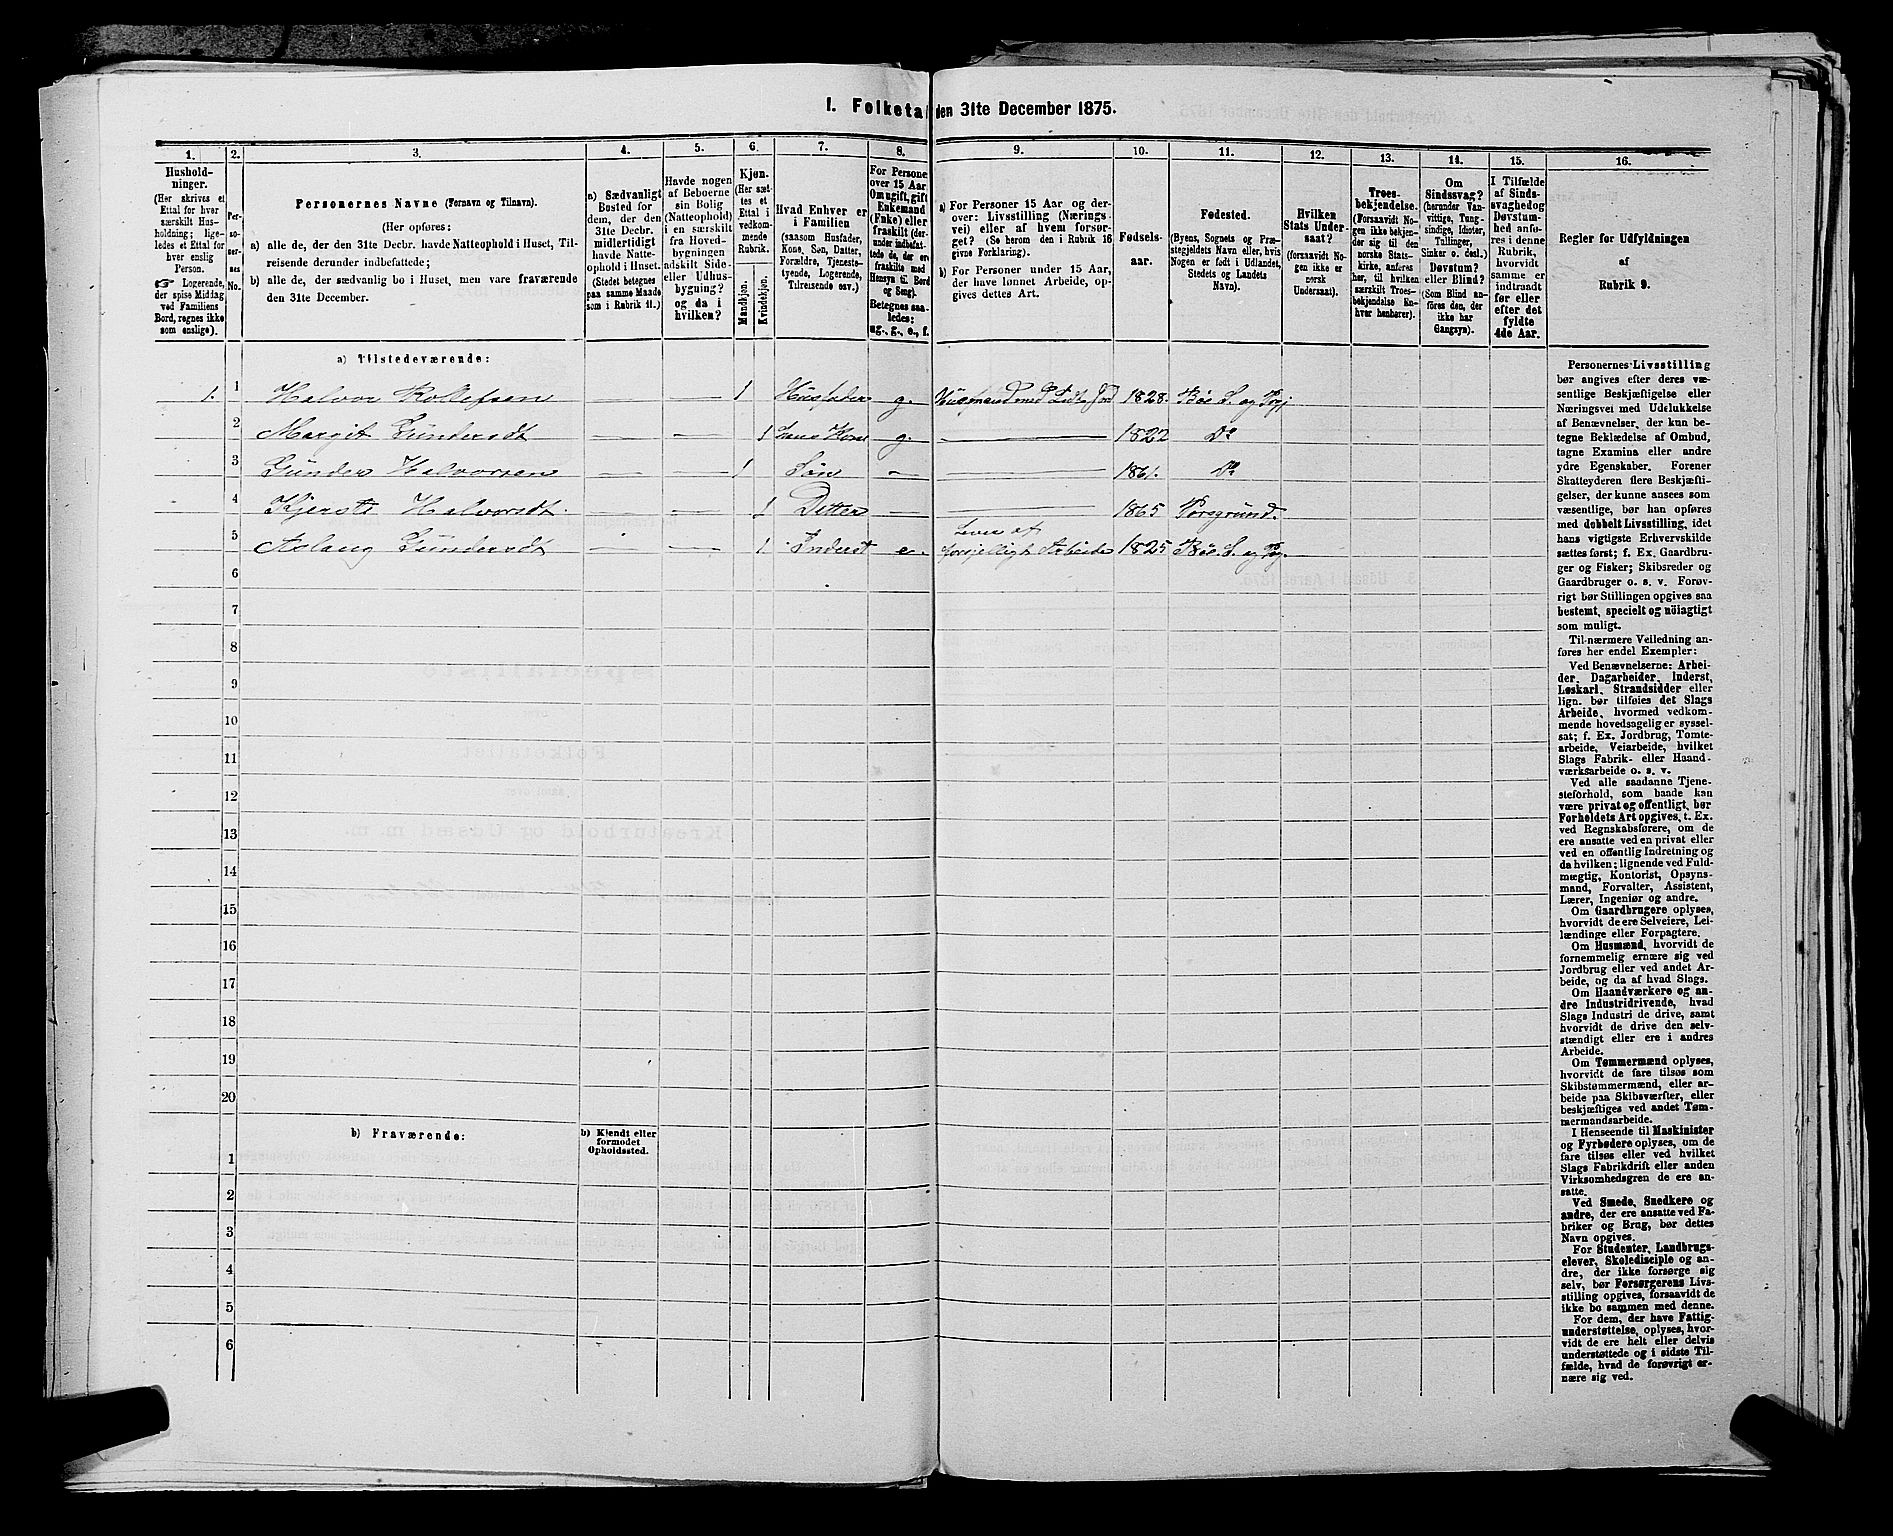 I. Folketal den 31te December 1875.
1.
2.
3.
4.
5.
6.
7.
8.
9.
10.
11.
12.
13.
14.
15.
16.
Hushold-
ninger.
(Her skrives et
Ettal for hver
særskilt Hus-
holdning; lige-
ledes et Ettal for
hver enslig
Person.
☞ Logerende,
der spise Middag
ved Familiens
Bord, regnes ikke
som enslige).
Per-
so-
ner-
nes
No.
Personernes Navne (Fornavn og Tilnavn).
(Her opføres:
a) alle de, der den 31te Decbr. havde Natteophold i Huset, Til-
reisende derunder indbefattede;
b) alle de, der sædvanlig bo i Huset, men vare fraværende
den 31te December.
a) Sædvanligt
Bosted for
dem, der den
31te Decbr.
midlertidigt
havde Natte-
ophold i Huset.
(Stedet betegnes
paa samme Maade
som i Rubrik 11.)
Havde nogen
af Beboerne
sin Bolig
(Natteophold)
i en særskilt
fra Hoved-
bygningen
adskilt Side-
eller Udhus-
bygning?
og da i
hvilken?
Kjøn.
(Her sæt-
tes et
Ettal i
vedkom-
mende
Rubrik.
Mandkjøn.
Kvindekjøn.
Hvad Enhver er
i Familien
(saasom Husfader,
Kone, Søn, Datter,
Forældre, Tjeneste-
tyende, Logerende,
Tilreisende osv.)
For Personer
over 15 Aar:
Om ugift, gift
Enkemand
(Enke) eller
fraskilt (der-
under indbefat-
tede de, der ere
fraskilte med
Hensyn til Bord
og Seng).
Betegnes saa-
ledes:
ug., g., e., f.
a) For Personer 15 Aar og der-
over: Livsstilling (Nærings
vei) eller af hvem forsør-
get? (Se herom den i Rubrik 16
givne Forklaring).
b) For Personer under 15 Aar,
der have lønnet Arbeide, op-
gives dettes Art.
Fødsels-
aar.
Fødested.
(Byens, Sognets og Præ-
stegjeldets Navn eller, hvis
Nogen er født i Udlandet,
Stedets og Landets
Navn).
Hvilken
Stats Under-
saat?
(forsaavidt No-
gen ikke er
norsk
Undersaat).
Troes-
bekjendelse.
(Forsaavidt No-
gen ikke bekjen-
der sig til den
norske Stats-
kirke, anføres
her, til hvilken
særskilt Troes-
bekjendelse En-
hver henhører).
Om
Sindssvag?
(herunder Van-
vittige, Tung-
sindige, Idioter,
Tullinger,
Sinker o. desl.)
Døvstum?
eller Blind?
(Som Blind an-
føres den, der
ikke har
Gangsyn).
I Tilfælde
af Sinds-
svaghed og
Døvstum-
hed anfø-
res i denne
Rubrik,
hvorvidt
samme er
indtraadt
før eller
efter det
fyldte
4de Aar.
Regler for Udfyldningen
af
Rubrik 9.
a) Tilstedeværende:
1. 1 Halvor Rollefsen — — 1 Husfader g. Husmand med Lidt Jord 1828. Bøe S. og Prgj
2 Margit Gundersdt — — 1 hans Kone g. — 1822 Do
3 Gunder Halvorsen — — 1 Søn — — 1861. Do
4 Kjerste Halvorsdt — — 1 Datter — — 1865 Porsgrund.
5 Aslaug Gundersdt — — 1 Inderst e. Lever af
forskjelligt Arbeide 1825 Bøe S. og Pg.
6
7
8
9
10
11
12
13
14
15
16
17
18
19
20
b) Fraværende:
b) Kjendt eller
formodet
Opholdssted.
1
2
3
4
5
6
Personernes Livsstilling
bør angives efter deres væ-
sentlige Beskjæftigelse eller
Næringsvei med Udelukkelse
af Benævnelser, der kun be-
tegne Beklædelse af Ombud,
tagne Examina eller andre
ydre Egenskaber. Forener
Skatteyderen flere Beskjæfti-
gelser, der kunne ansees som
væsentlige, bør han opføres
med dobbelt Livsstilling, idet
hans vigtigste Erhvervskilde
sættes først; f. Ex. Gaardbru-
ger og Fisker; Skibsreder og
Gaardbruger o. s. v. Forøv-
rigt bør Stillingen opgives saa
bestemt, specielt og nöiagtigt
som muligt.
Til nærmere Veiledning an-
føres her endel Exempler:
Ved Benævnelserne: Arbei-
der, Dagarbeider, Inderst,
Løskarl, Strandsidder eller
lign. bør tilføies det Slags
Arbeide, hvormed vedkom-
mende hovedsagelig er syssel-
sat; f. Ex. Jordbrug, Tomte-
arbeide, Veiarbeide, hvilket
Slags Fabrik- eller Haand-
værksarbeide o. s. v.
Ved alle saadanne Tjene-
steforhold, som baade kan
være privat og offentligt, bør
Forholdets Art opgives, t. Ex.
ved Regnskabsførere, om de
ere ansatte ved en privat eller
ved en offentlig Indretning og
da hvilken; lignende ved Fuld-
mægtig, Kontorist, Opsyns-
mand, Forvalter, Assistent,
Lærer, Ingeniør og andre.
Om Gaardbrugere oplyses,
hvorvidt de ere Selveiere, Lei-
lændinge eller Forpagtere.
Om Husmænd, hvorvidt de
fornemmelig ernære sig ved
Jordbrug eller ved andet Ar-
beide, og da af hvad Slags.
Om Haandværkere og an-
dre Industridrivende, hvad
Slags Industri de drive, samt
hvorvidt de drive den selv-
stændigt eller ere i andres
Arbeide.
Om Tømmermænd oplyses,
hvorvidt de fare tilsøs som
Skibstømmermænd, eller ar-
beide paa Skibsværfter, eller
beskjæftiges ved andet Tøm-
mermandsarbeide.
I Henseende til Maskinister
og Fyrbødere oplyses, om de
fare tilsøs eller ved hvilket
Slags Fabrikdrift eller anden
Virksomhedsgren de ere an-
satte.
Ved Smede, Snedkere og
andre, der ere ansatte ved Fa-
briker og Brug, bør dettes
Navn opgives.
For Studenter, Landbrugs-
elever, Skoledisciple og an-
dre, der ikke forsørge sig
selv, bør Forsørgerens Livs-
stilling opgives, forsaavidt de
ikke bo sammen med denne.
For dem, der have Fattig-
understøttelse, oplyses, hvor-
vidt de ere helt eller delvis
understøttede og i sidste Til-
fælde, hvad de forøvrigt er-
nære sig ved.